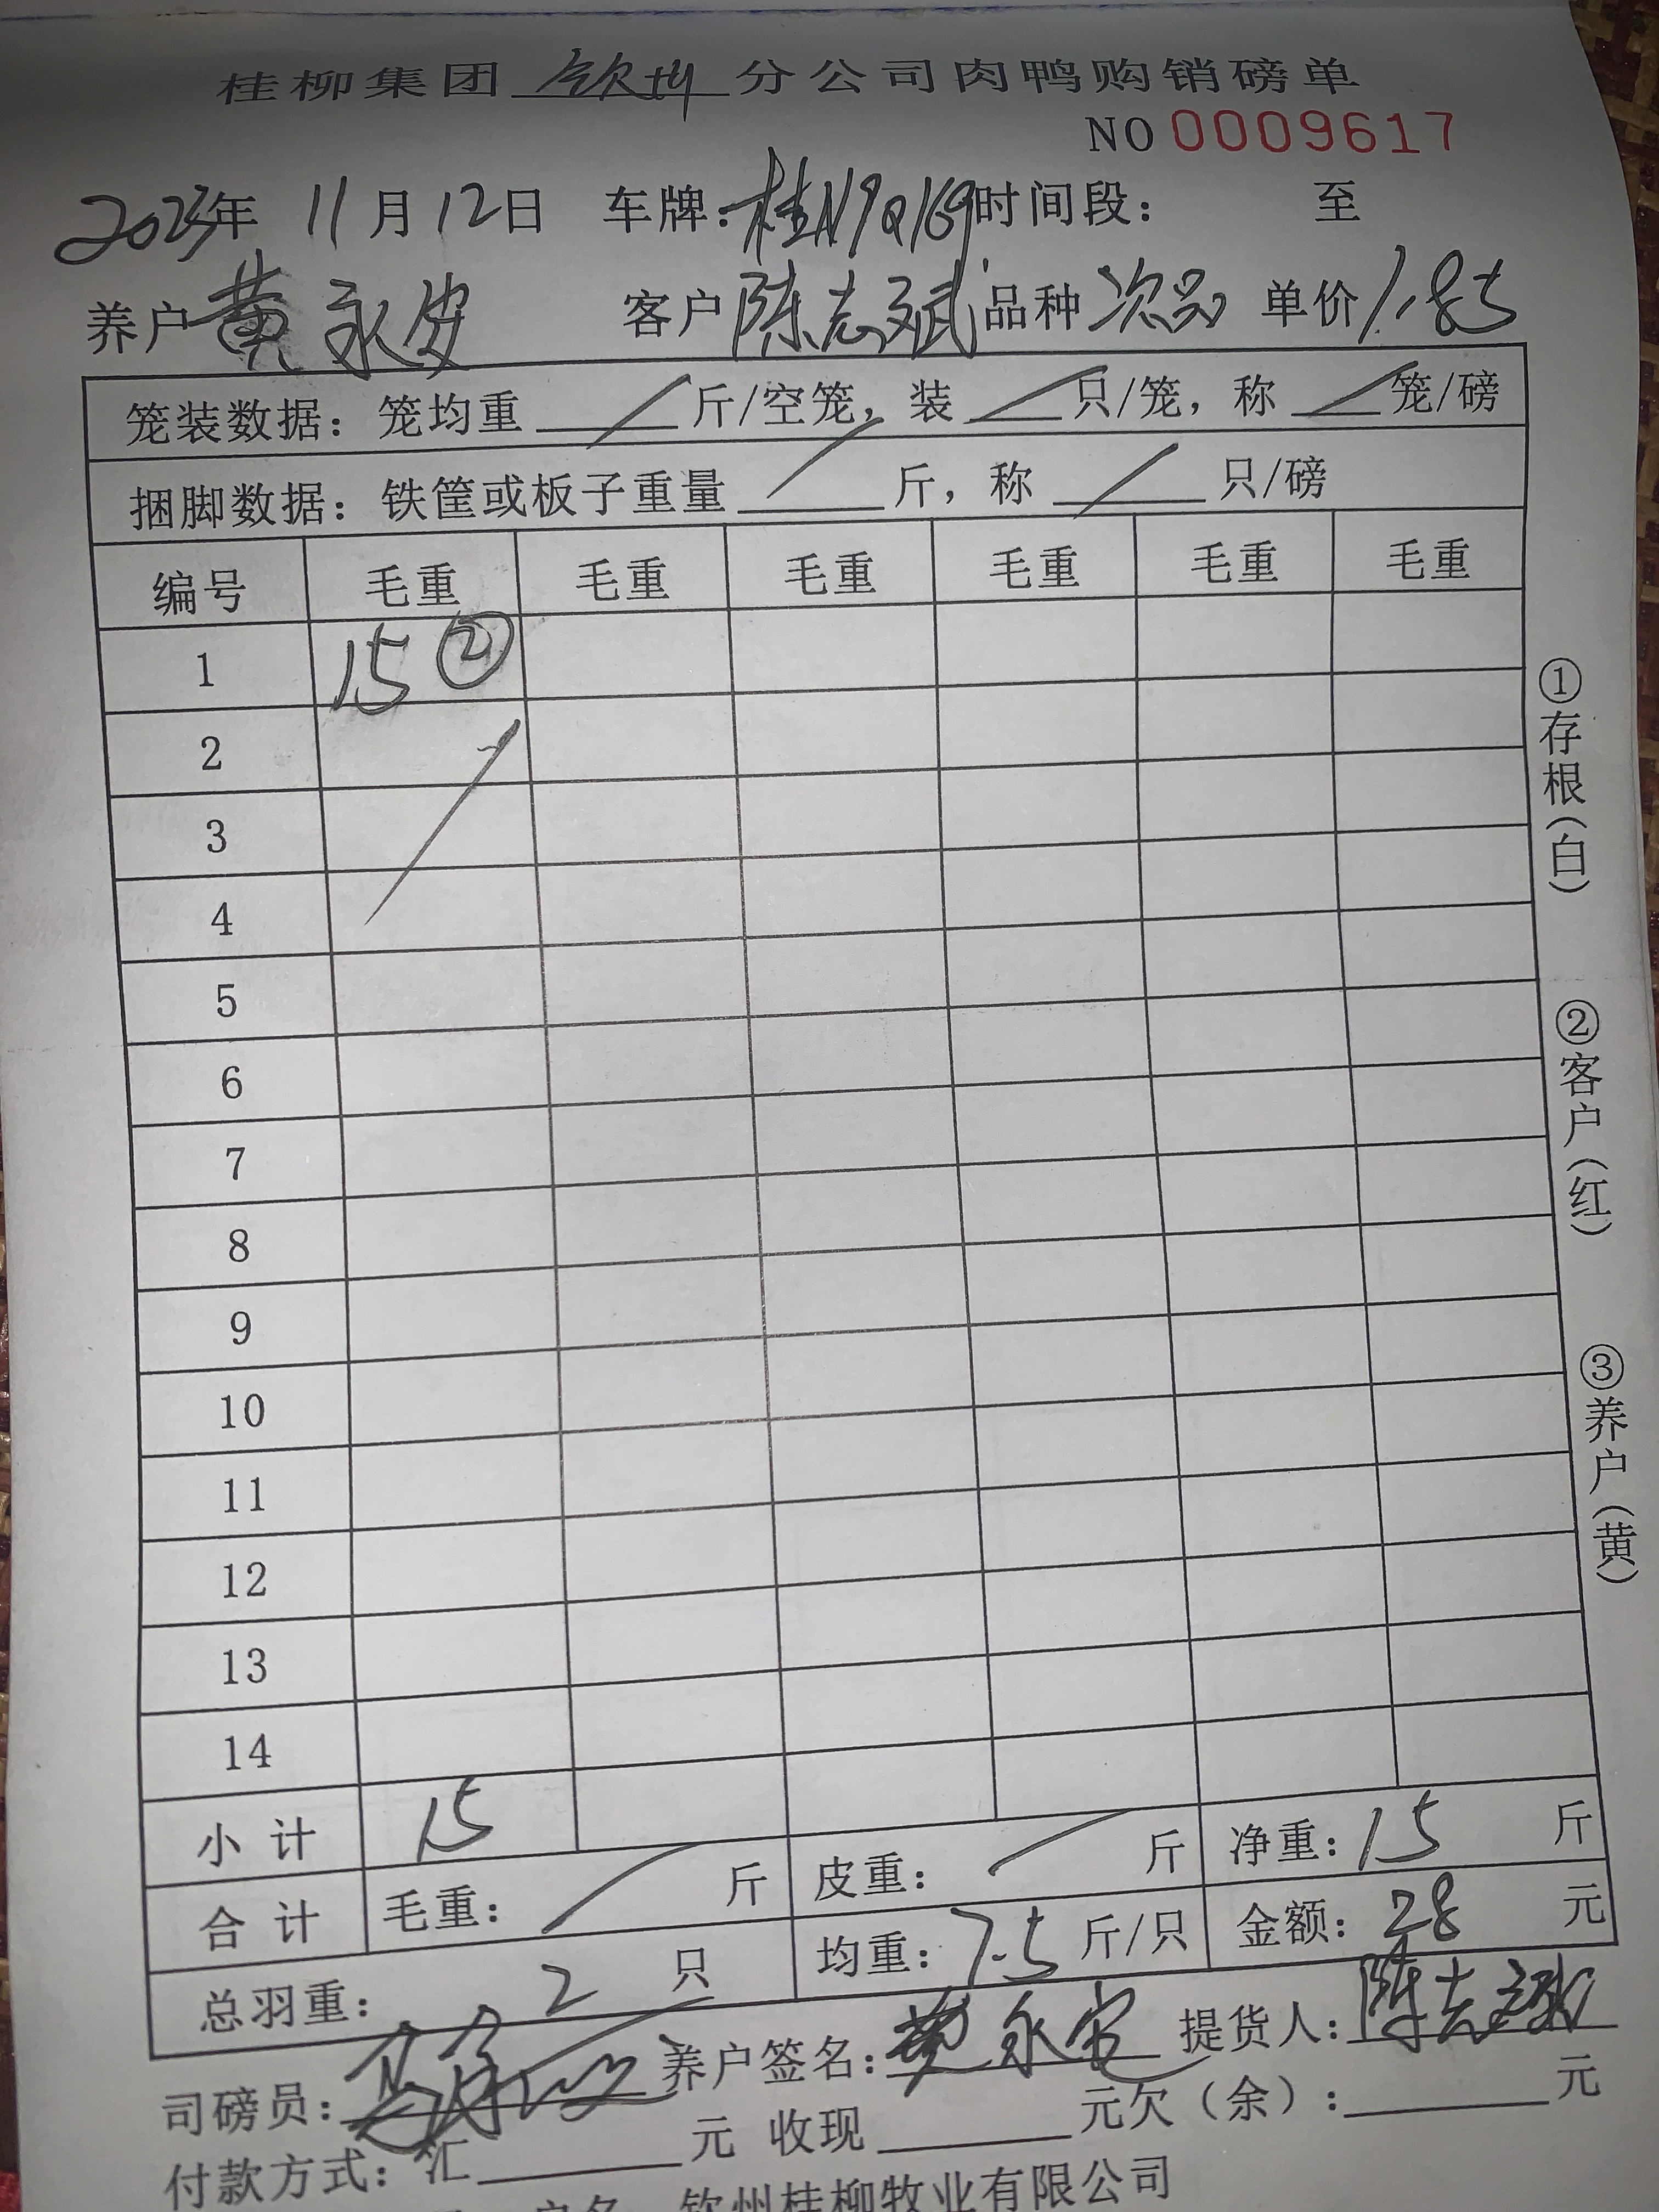 桂柳集团 钦州 分公司肉鸭购销磅单
NO 0009617
2023年 11月12日 车牌:桂N9Q169 时间段: 至
养户 黄永安 客户 陈志斌 品种 次品 单价 1.85
笼装数据: 笼均重 / 斤/空笼, 装 / 只/笼, 称 / 笼/磅
捆脚数据: 铁筐或板子重量 / 斤, 称 / 只/磅
编号 毛重 毛重 毛重 毛重 毛重 毛重
1 15 ②
2
3
4
5
6
7
8
9
10
11
12
13
14
小计 15
合计 毛重: / 斤 皮重: / 斤 净重: 15 斤
总羽重: 2 只 均重: 7.5 斤/只 金额: 28 元
司磅员: 养户签名: 黄永安 提货人: 陈志斌
付款方式: 汇 元 收现 元欠(余): 元
户名 钦州桂柳牧业有限公司
①存根(白)
②客户(红)
③养户(黄)